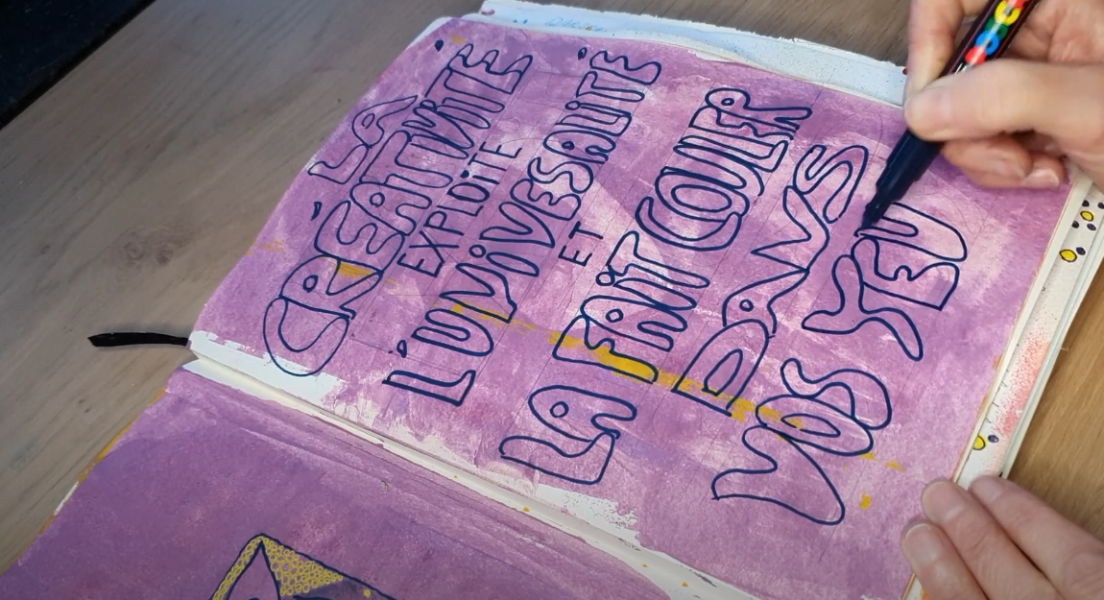 LA
CRÉATIVITÉ
EXPLOITE
L'UNiVERSALiTÉ
ET
LA FAIT COULER
DANS
VOS YEU